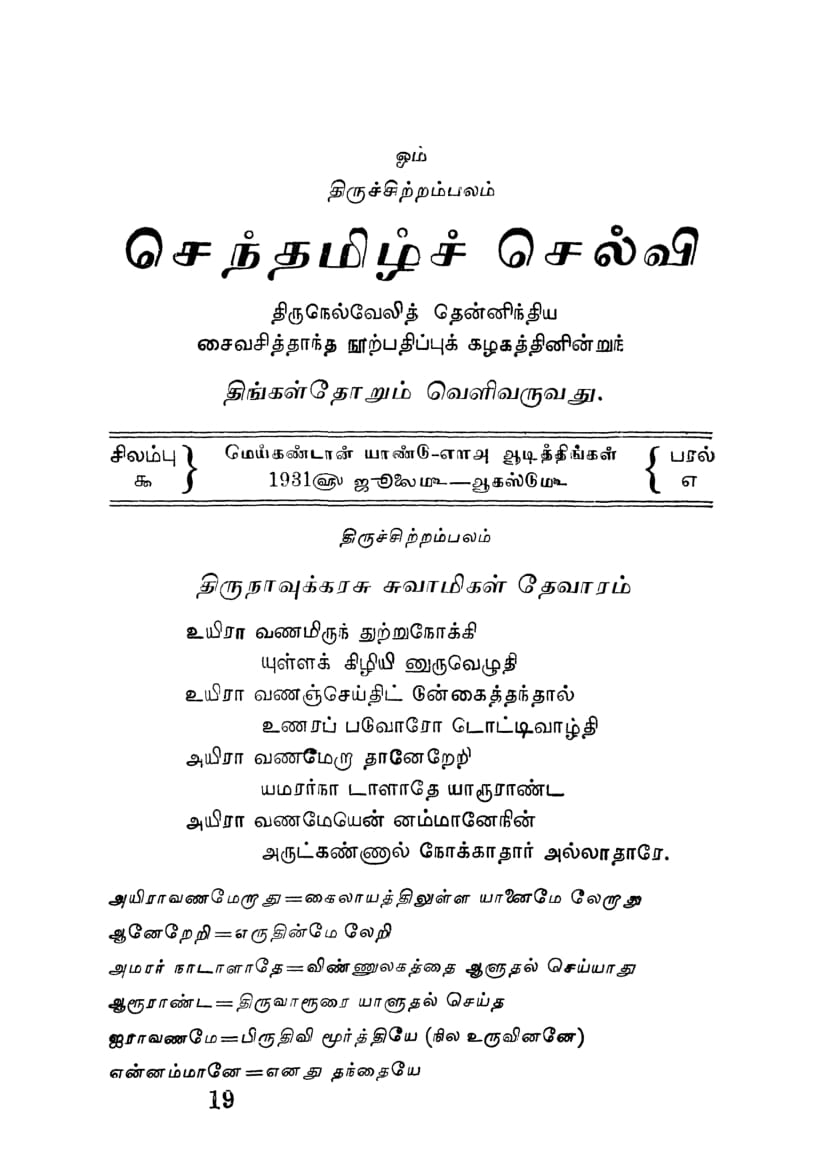 ஓம்
திருச்சிற்றம்பலம்
செந்தமிழ்ச் செல்வி
திருநெல்வேலித் தென்னிந்திய
சைவசித்தாந்த நூற்பதிப்புக் கழகத்தினின்றுந்
திங்கள்தோறும் வெளிவருவது.
சிலம்பு ௯ } மெய்கண்டான் யாண்டு-௭௱௮ ஆடித்திங்கள் { பரல் ௭
1931௵ ஜூலை௴—ஆகஸ்டு௴
திருச்சிற்றம்பலம்
திருநாவுக்கரசு சுவாமிகள் தேவாரம்
உயிரா வணமிருந் துற்றுநோக்கி
யுள்ளக் கிழியி னுருவெழுதி
உயிரா வணஞ்செய்திட் டுன்கைத்தந்தால்
உணரப் படுவாரோ டொட்டிவாழ்தி
அயிரா வணமேறா தானேறேறி
யமரர்நா டாளாதே யாரூராண்ட
அயிரா வணமேயென் னம்மானேநின்
அருட்கண்ணால் நோக்காதார் அல்லாதாரே.
அயிராவணமேறாது=கைலாயத்திலுள்ள யானைமே லேறாது
ஆனேறேறி=எருதின்மே லேறி
அமரர் நாடாளாதே=விண்ணுலகத்தை ஆளுதல் செய்யாது
ஆரூராண்ட=திருவாரூரை யாளுதல் செய்த
ஐராவணமே=பிருதிவி மூர்த்தியே (நில உருவினனே)
என்னம்மானே=எனது தந்தையே
19